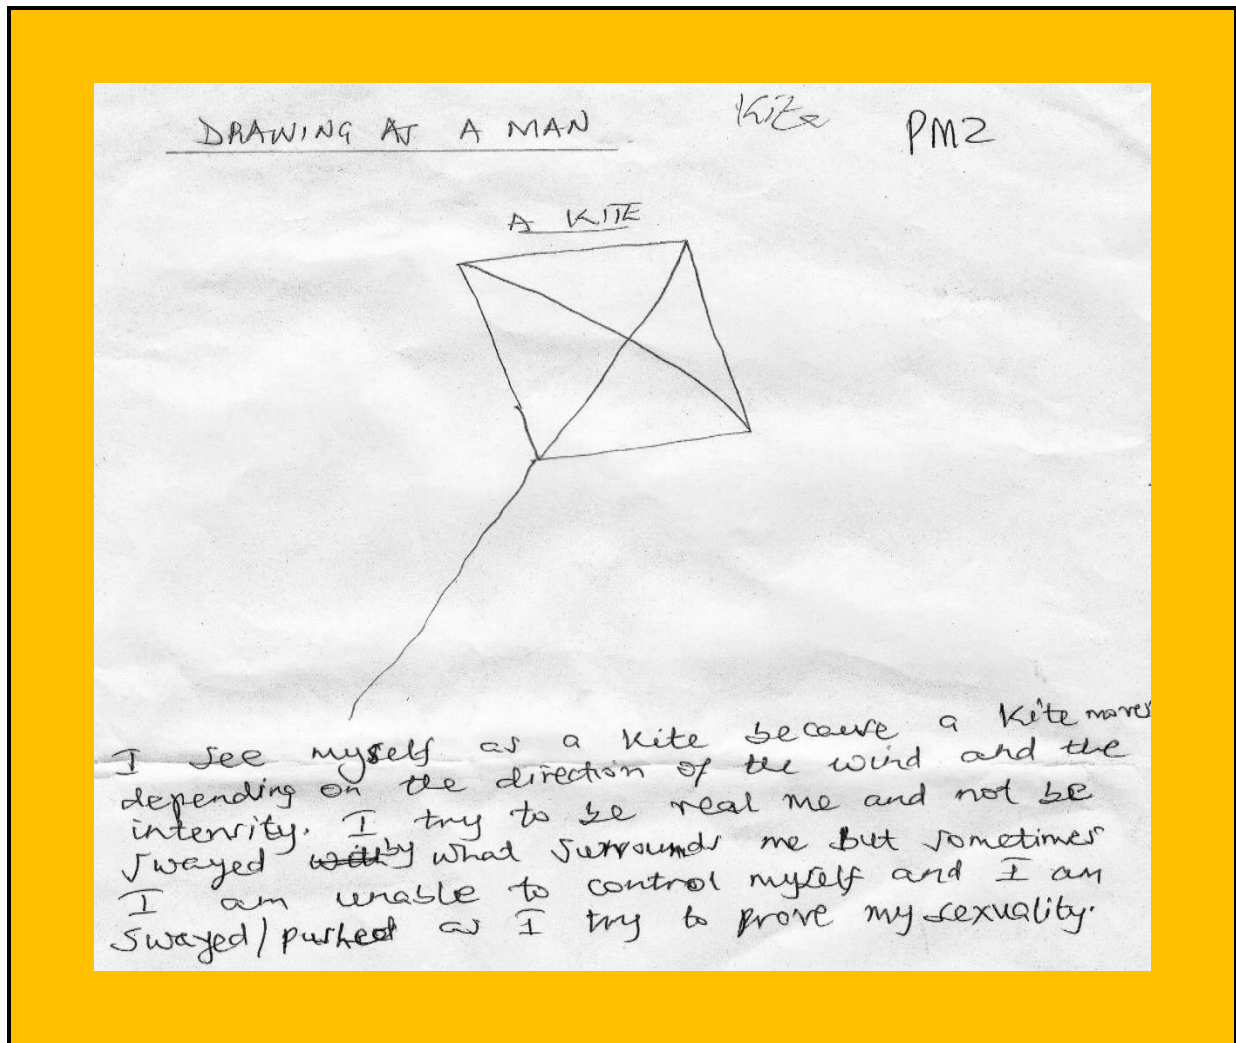 DRAWING AS A MAN
Kite
PM2
A KITE
I see myself as a kite because a kite moves
depending on the direction of the wind and the
intensity. I try to be real me and not be
swayed with by what surrounds me but sometimes
I am unable to control myself and I am
swayed/pushed as I try to prove my sexuality.